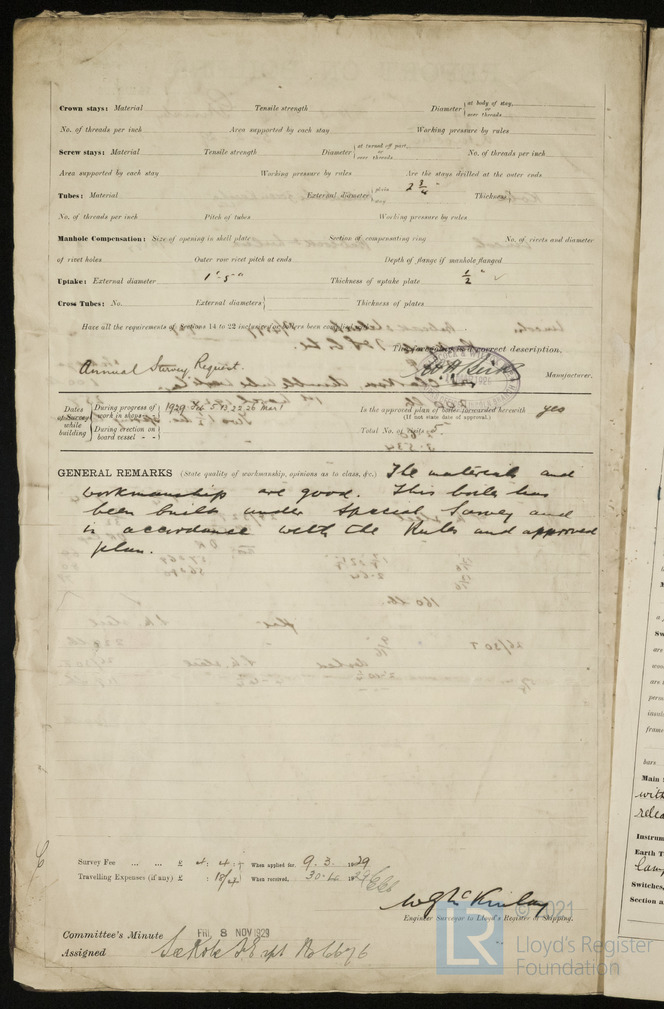 Crown stays: Material Tensile strength Diameter at body of stay, or over threads
No. of threads per inch Area supported by each stay Working pressure by rules
Screw stays: Material Tensile strength Diameter at turned off part, or over threads No. of threads per inch
Area supported by each stay Working pressure by rules Are the stays drilled at the outer ends
Tubes: Material External diameter plain stay 2 3/4" Thickness
No. of threads per inch Pitch of tubes Working pressure by rules
Manhole Compensation: Size of opening in shell plate Section of compensating ring No. of rivets and diameter
of rivet holes Outer row rivet pitch at ends Depth of flange if manhole flanged
Uptake: External diameter 1'-5" Thickness of uptake plate 1/2" ✓
Cross Tubes: No. External diameters Thickness of plates
Have all the requirements of Sections 14 to 22 inclusive for boilers been complied
The foregoing is a correct description,
Annual Survey Request.
Manufacturer.
Dates of Survey while building
During progress of work in shops - - 1929 Feb 5 13 22 26 Mar 1
During erection on board vessel - - -
Is the approved plan of boiler forwarded herewith yes
(If not state date of approval.)
Total No. of visits 5
GENERAL REMARKS (State quality of workmanship, opinions as to class, &c.) The materials and
workmanship are good. This boiler has
been built under Special Survey and
in accordance with the Rules and approved
plan.
Survey Fee ... ... £ 4 : 4 : When applied for, 9. 3. 1929
Travelling Expenses (if any) £ : 10/4 : When received, 30. 4. 1929
W G McKinlay
Engineer Surveyor to Lloyd's Register of Shipping.
Committee's Minute FRI. 8 NOV 1929
Assigned
© 2021
LR
Lloyd's Register
Foundation
Sw
are
are
perm
insul
from
bare.
Main
with
relea
Instrum
Earth T
lamp
Switches,
Section a